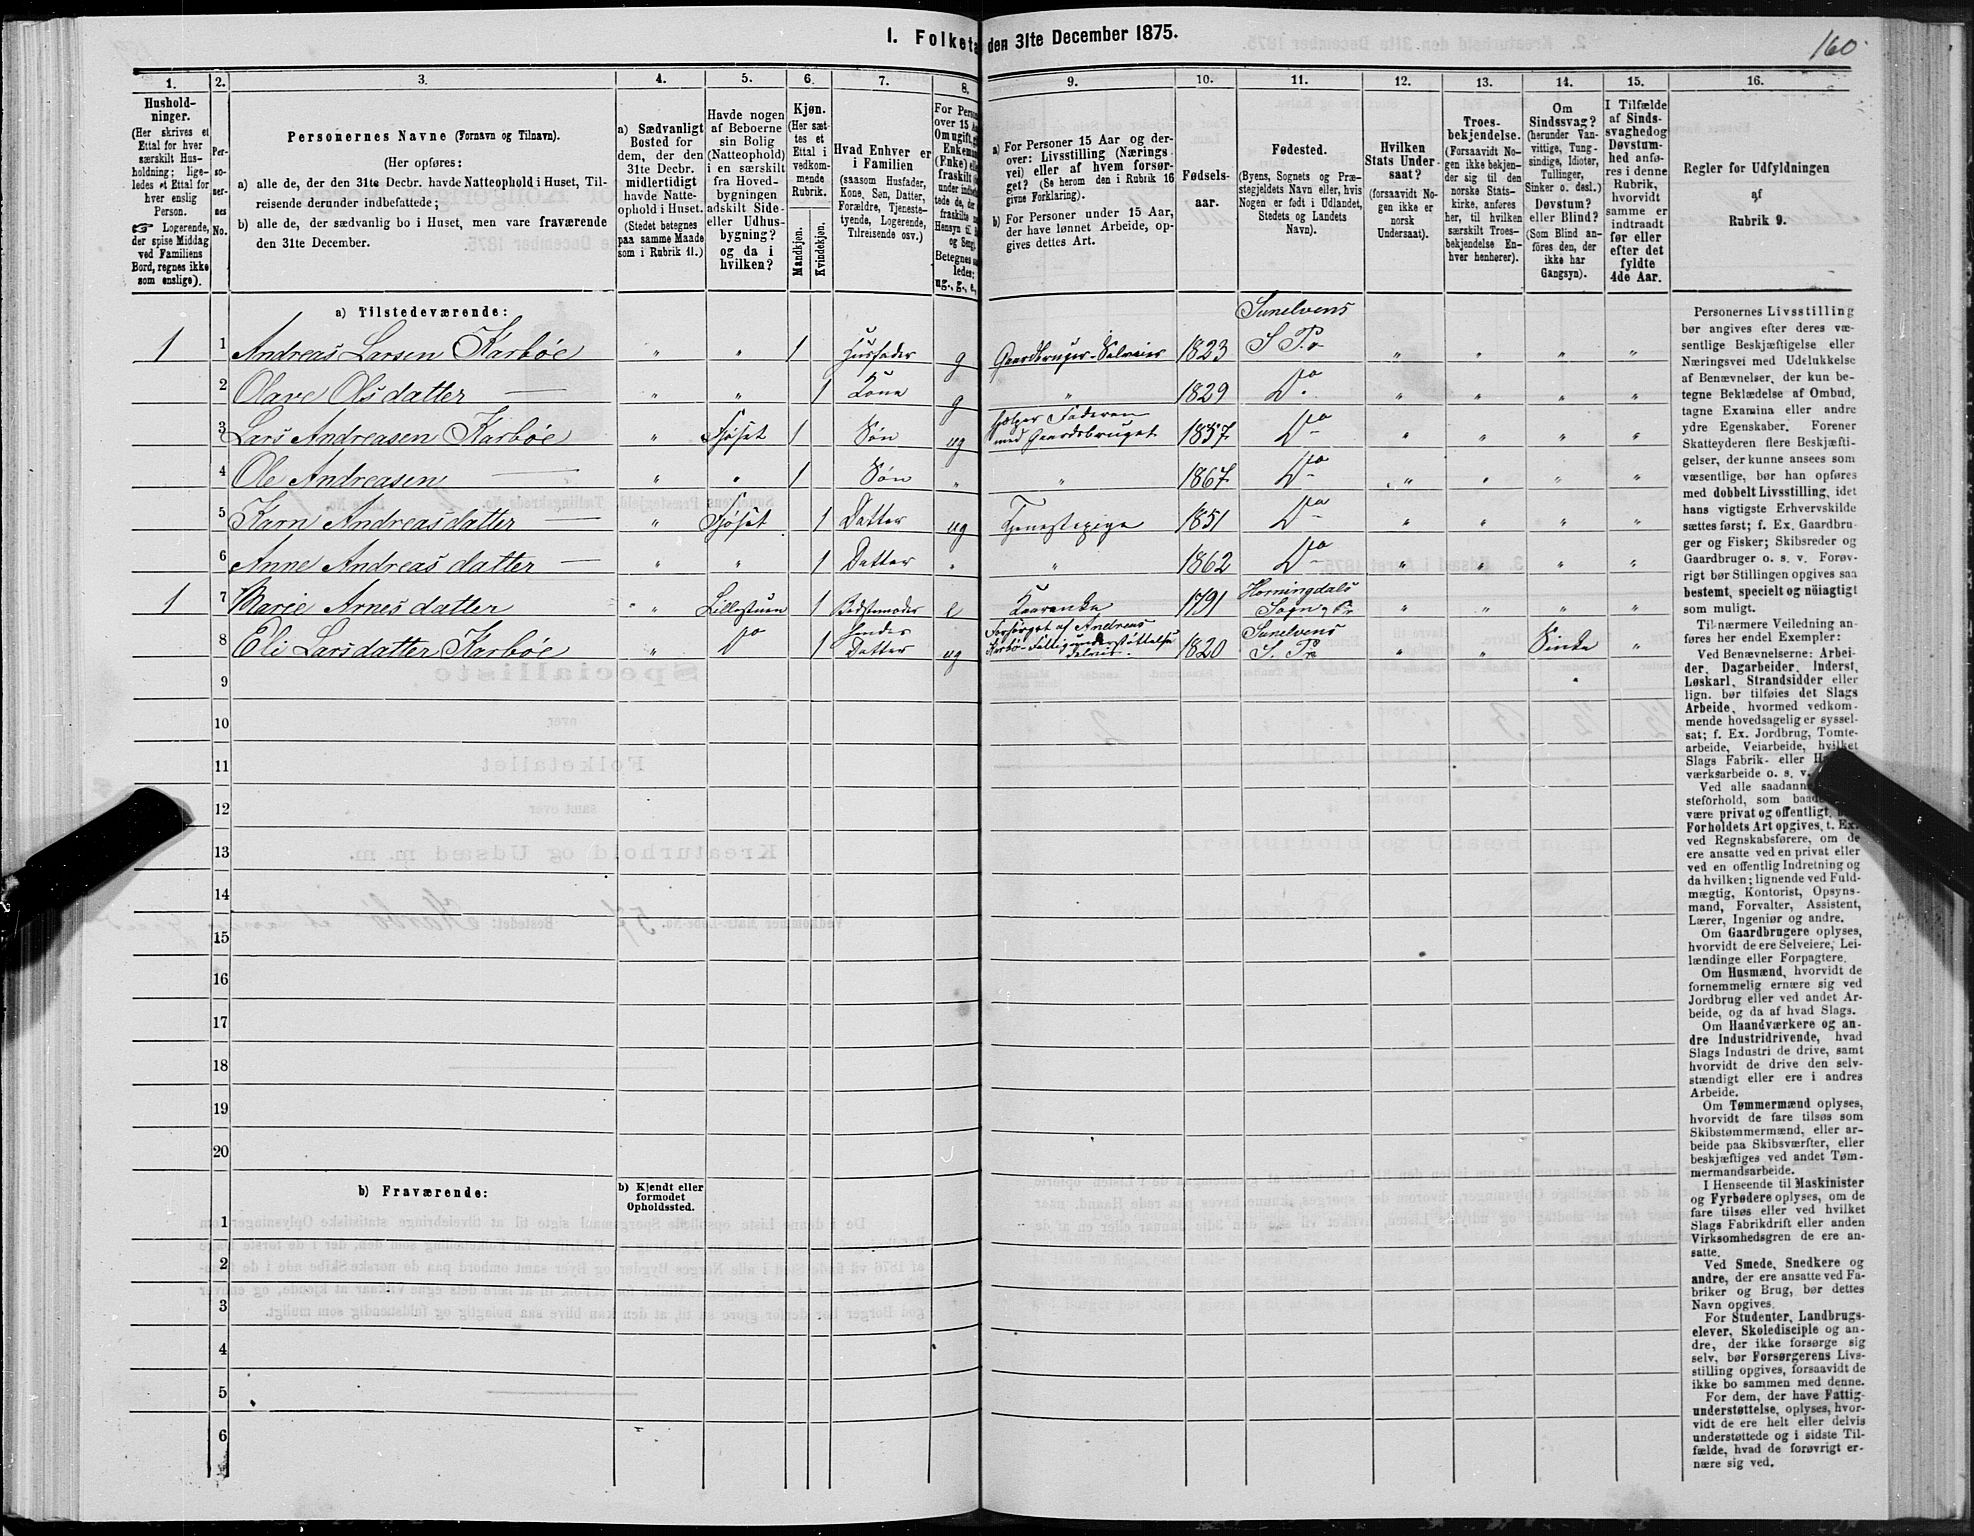 160
I. Folketa den 31te December 1875.
1. 2. 3. 4. 5. 6. 7. 8. 9. 10. 11. 12. 13. 14. 15. 16.
Hushold-
ninger.
(Her skrives et
Ettal for hver
særskilt Hus-
holdning; lige-
ledes et Ettal for
hver enslig
Person.
☞ Logerende,
der spise Middag
ved Familiens
Bord, regnes ikke
som enslige).
Per-
so-
ner-
nes
No.
Personernes Navne (Fornavn og Tilnavn).
(Her opføres:
a) alle de, der den 31te Decbr. havde Natteophold i Huset, Til-
reisende derunder indbefattede;
b) alle de, der sædvanlig bo i Huset, men vare fraværende
den 31te December.
a) Sædvanligt
Bosted for
dem, der den
31te Decbr.
midlertidigt
havde Natte-
ophold i Huset.
(Stedet betegnes
paa samme Maade
som i Rubrik 11.)
Havde nogen
af Beboerne
sin Bolig
(Natteophold)
i en særskilt
fra Hoved-
bygningen
adskilt Side-
eller Udhus-
bygning?
og da i
hvilken?
Kjøn.
(Her sæt-
tes et
Ettal i
vedkom-
mende
Rubrik.
Mandkjøn.
Kvindekjøn.
Hvad Enhver er
i Familien
(saasom Husfader,
Kone, Søn, Datter,
Forældre, Tjeneste-
tyende, Logerende,
Tilreisende osv.)
For Perso
over 15 Aa
Om ugift, g
Enkem
(Enke) el
fraskilt
under indbe
tede de, de
fraskilte
Hensyn ti
og Seng
Betegnes s
ledes:
ug., g., e,
a) For Personer 15 Aar og der-
over: Livsstilling (Nærings-
vei) eller af hvem forsør-
get? (Se herom den i Rubrik 16
givne Forklaring).
b) For Personer under 15 Aar,
der have lønnet Arbeide, op-
gives dettes Art.
Fødsels-
aar.
Fødested.
(Byens, Sognets og Præ-
stegjeldets Navn eller, hvis
Nogen er født i Udlandet,
Stedets og Landets
Navn).
Hvilken
Stats Under-
saat?
(forsaavidt No-
gen ikke er
norsk
Undersaat).
Troes-
bekjendelse.
(Forsaavidt No-
gen ikke bekjen-
der sig til den
norske Stats-
kirke, anføres
her, til hvilken
særskilt Troes-
bekjendelse En-
hver henhører).
Om
Sindssvag?
(herunder Van-
vittige, Tung-
sindige, Idioter,
Tullinger,
Sinker o. desl.)
Døvstum?
eller Blind?
(Som Blind an-
føres den, der
ikke har
Gangsyn).
I Tilfælde
af Sinds-
svaghedog
Døvstum-
hed anfø-
res i denne
Rubrik,
hvorvidt
samme er
indtraadt
før eller
efter det
fyldte
4de Aar.
Regler for Udfyldningen
af
Rubrik 9.
a) Tilstedeværende:
1 1 Andreas Larsen Karbøe " " 1 Husfader g Gaardbruger-Selveier 1823 Sunelvens S Pr " " " "
2 Olave Olsdatter — " " 1 Kone g " 1829 Do " " " "
3 Lars Andreasen Karbøe " Fjøset 1 Søn ug hjelper Faderen med Gaardsbruget 1857 Do " " " "
4 Ole Andreasen — " " 1 Søn " " 1867 Do " " " "
5 Karn Andreasdatter — " Fjøset 1 Datter ug Tjenestepige 1851 Do " " " "
6 Anne Andreasdatter — " " 1 Datter " " 1862 Do " " " "
1 7 Marie Arnesdatter " Lillestuen 1 Bedstemoder e Kaarenke 1791 Horningdals Sogn " " " "
8 Eli Larsdatter Karbøe " Do 1 Hendes Datter ug Forsørget af Andreas Karbø-Fattigunderstøttelse 1820 Sunelvens S. Pr " " Sinke "
9
10
11
12
13
14
15
16
17
18
19
20
b) Fraværende:
b) Kjendt eller
formodet
Opholdssted.
1
2
3
4
5
6
Personernes Livsstilling
bør angives efter deres væ-
sentlige Beskjæftigelse eller
Næringsvei med Udelukkelse
af Benævnelser, der kun be-
tegne Beklædelse af Ombud,
tagne Examina eller andre
ydre Egenskaber. Forener
Skatteyderen flere Beskjæfti-
gelser, der kunne ansees som
væsentlige, bør han opføres
med dobbelt Livsstilling, idet
hans vigtigste Erhvervskilde
sættes først; f. Ex. Gaardbru-
ger og Fisker; Skibsreder og
Gaardbruger o. s. v. Forøv-
rigt bør Stillingen opgives saa
bestemt, specielt og nöiagtigt
som muligt.
Til nærmere Veiledning an-
føres her endel Exempler:
Ved Benævnelserne: Arbei-
der, Dagarbeider, Inderst,
Løskarl, Strandsidder eller
lign. bør tilføies det Slags
Arbeide, hvormed vedkom-
mende hovedsagelig er syssel-
sat; f. Ex. Jordbrug, Tomte-
arbeide, Veiarbeide, hvilket
Slags Fabrik- eller H
værksarbeide o. s. v.
Ved alle saadann
steforhold, som baad
være privat og offentligt,
Forholdets Art opgives, t. Ex.
ved Regnskabsførere, om de
ere ansatte ved en privat eller
ved en offentlig Indretning og
da hvilken; lignende ved Fuld-
mægtig, Kontorist, Opsyns-
mand, Forvalter, Assistent,
Lærer, Ingeniør og andre.
Om Gaardbrugere oplyses,
hvorvidt de ere Selveiere, Lei-
lændinge eller Forpagtere.
Om Husmænd, hvorvidt de
fornemmelig ernære sig ved
Jordbrug eller ved andet Ar-
beide, og da af hvad Slags.
Om Haandværkere og an-
dre Industridrivende, hvad
Slags Industri de drive, samt
hvorvidt de drive den selv-
stændigt eller ere i andres
Arbeide.
Om Tømmermænd oplyses,
hvorvidt de fare tilsøs som
Skibstømmermænd, eller ar-
beide paa Skibsværfter, eller
beskjæftiges ved andet Tøm-
mermandsarbeide.
I Henseende til Maskinister
og Fyrbødere oplyses, om de
fare tilsøs eller ved hvilket
Slags Fabrikdrift eller anden
Virksomhedsgren de ere an-
satte.
Ved Smede, Snedkere og
andre, der ere ansatte ved Fa-
briker og Brug, bør dettes
Navn opgives.
For Studenter, Landbrugs-
elever, Skoledisciple og an-
dre, der ikke forsørge sig
selv, bør Forsørgerens Livs-
stilling opgives, forsaavidt de
ikke bo sammen med denne.
For dem, der have Fattig-
understøttelse, oplyses, hvor-
vidt de ere helt eller delvis
understøttede og i sidste Til-
fælde, hvad de forøvrigt er-
nære sig ved.